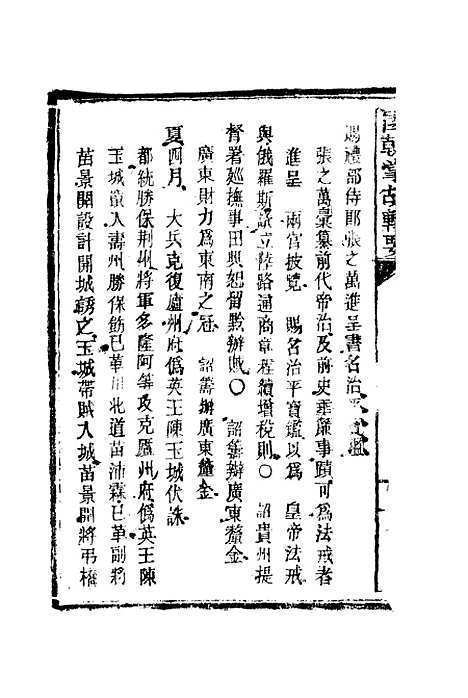 皇朝掌故輯要
賜禮部侍郎張之萬進呈書名治平寶鑑
張之萬彙纂前代帝治及前史垂簾事蹟可為法戒者
進呈 兩宮披覽 賜名治平寶鑑以為 皇帝法戒
與俄羅斯議立陸路通商章程續增稅則○ 詔貴州提
督署巡撫事田興恕留黔辦賊○ 詔籌辦廣東釐金
廣東財力為東南之冠 詔籌辦廣東釐金
夏四月 大兵克復廬州府偽英王陳玉城伏誅
都統勝保荆州將軍多隆阿等攻克廬州府偽英王陳
玉城竄入壽州勝保飭已革川北道苗沛霖已革副將
苗景開設計開城誘之玉城帶賊入城苗景開將弔橋